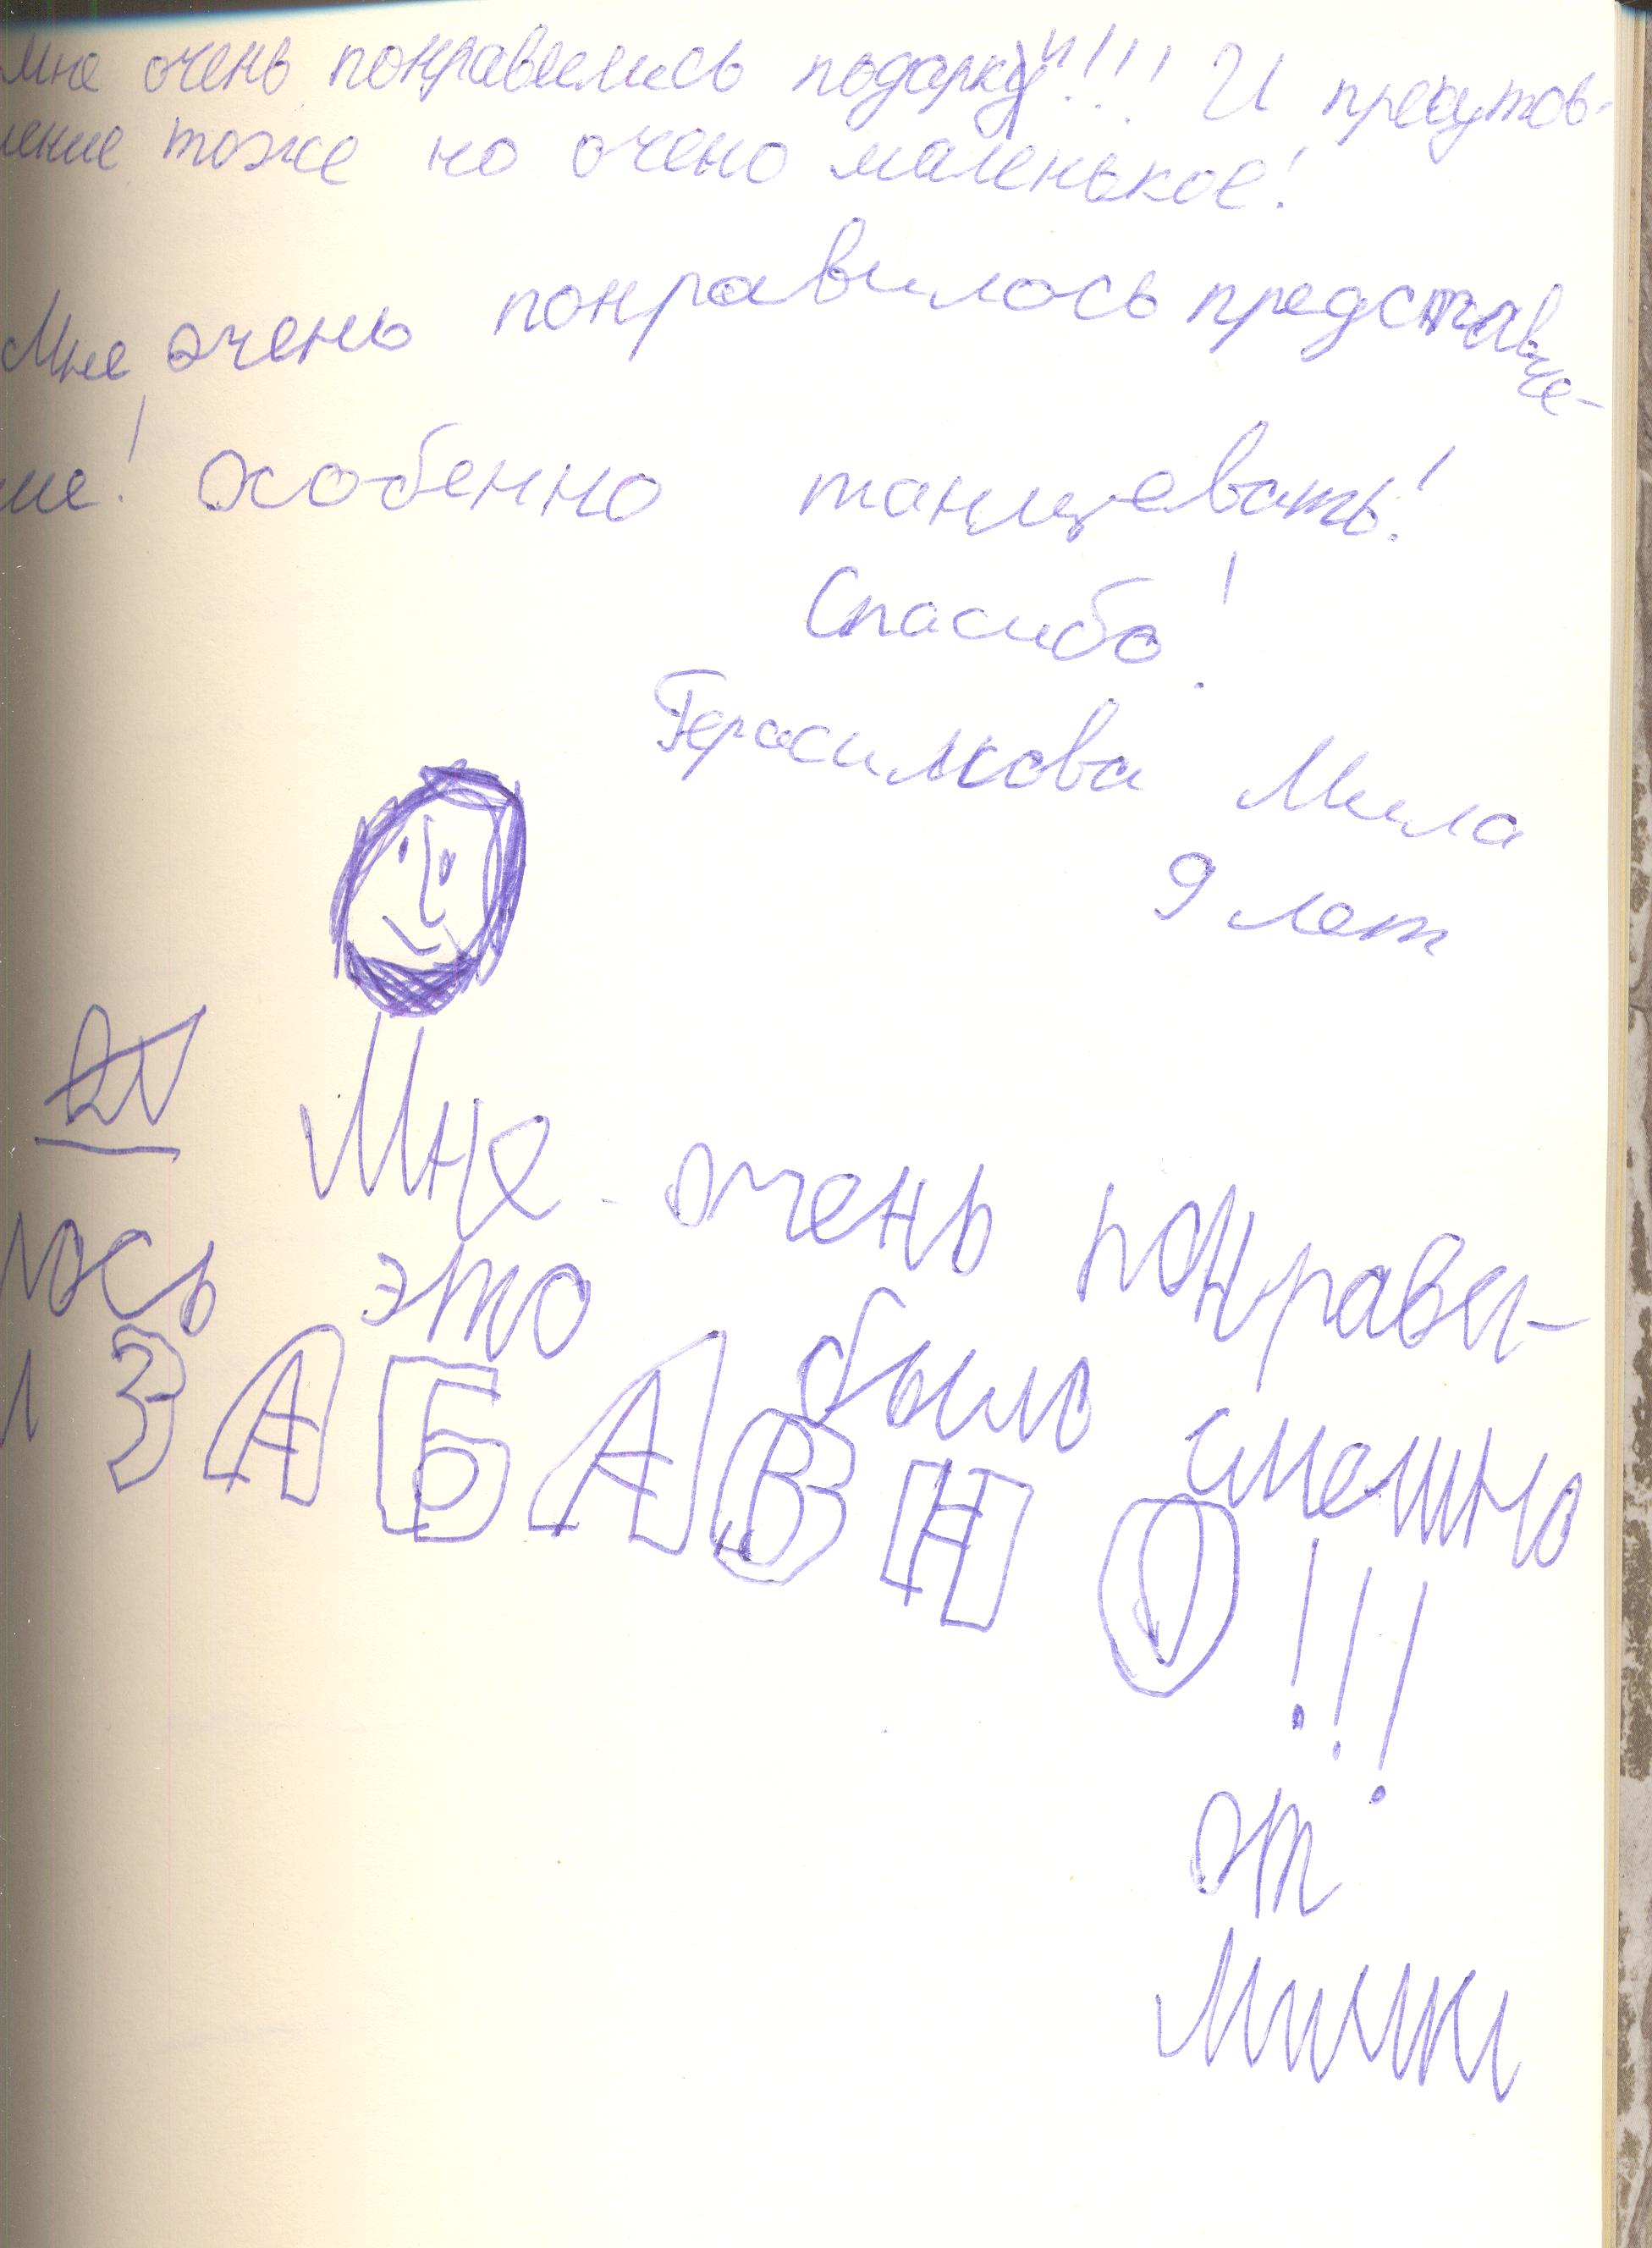 Мне очень понравились подарки!!! И
ление тоже но очено маленькое!
Мне очень понравилось представле-
ние! Особенно танцевать!
Спасибо!
Герасимова Мила
9 лет
Мне очень понрави-
лось это было смешно
и ЗАБАВНО!!!
от